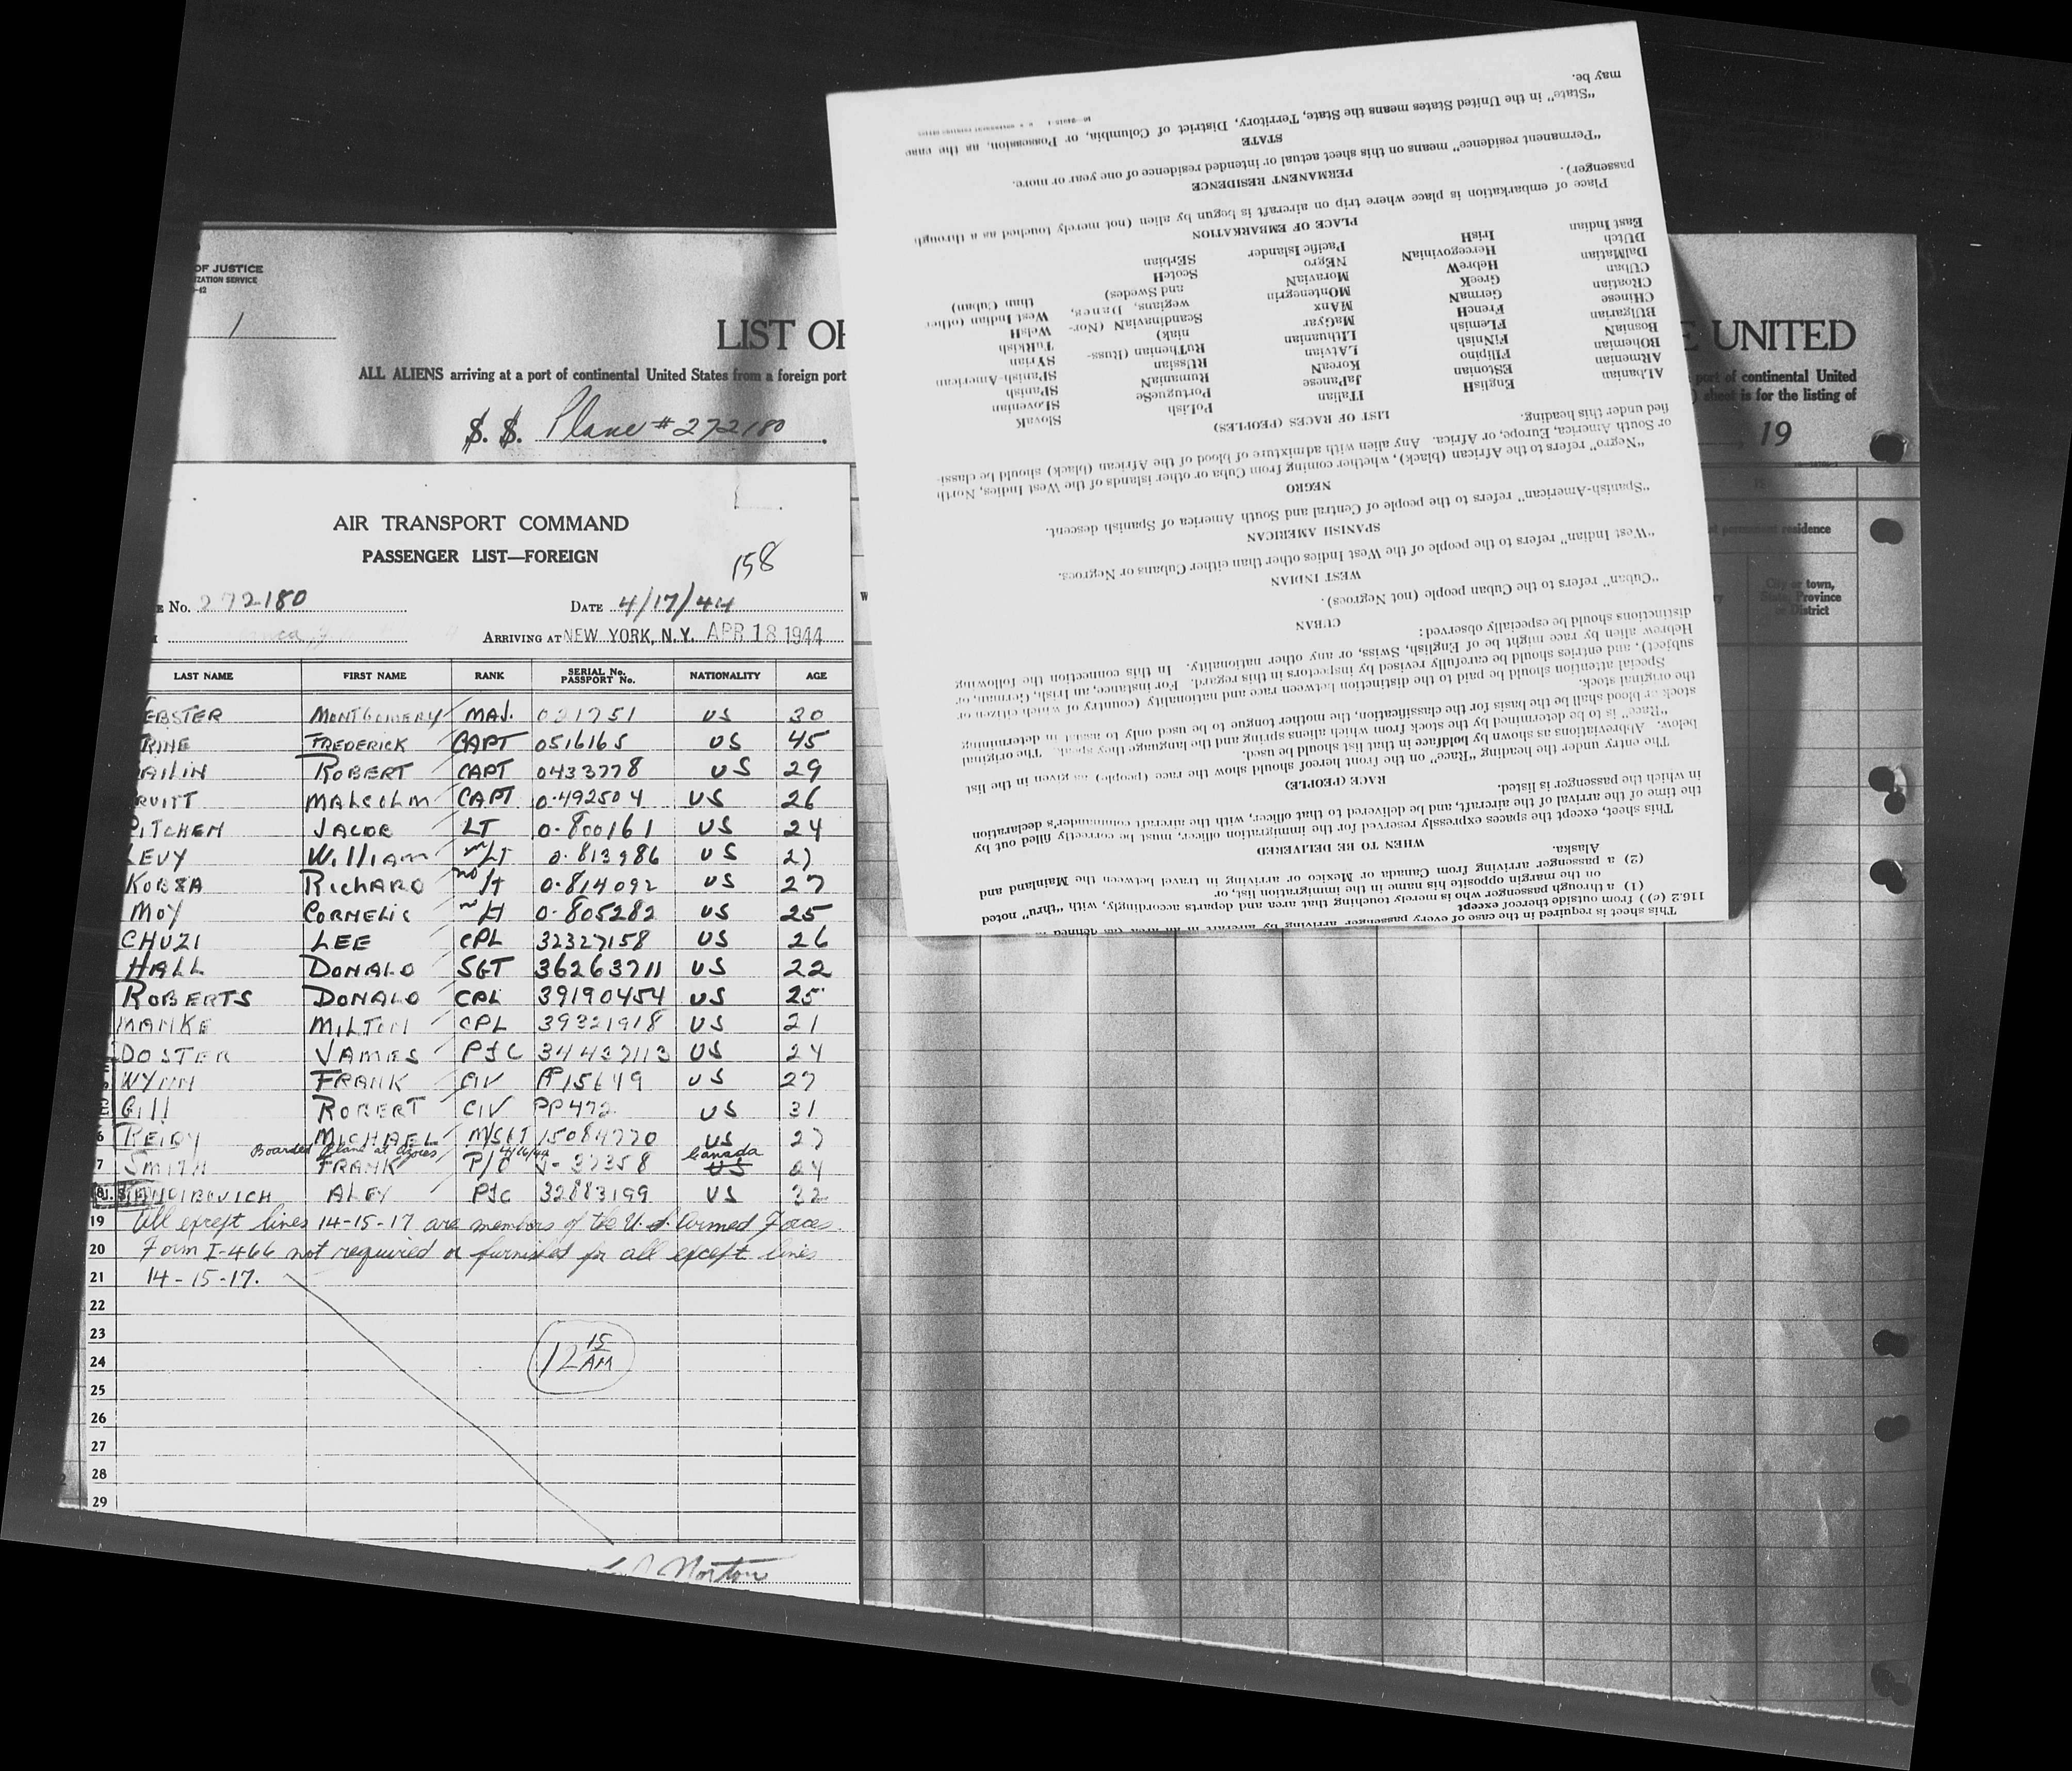 OF JUSTICE
ZATION SERVICE
-42
1
LIST OF
ALL ALIENS arriving at a port of continental United States from a foreign port
S. S. Plane # 272180
AIR TRANSPORT COMMAND
PASSENGER LIST—FOREIGN
158
No. 272180 DATE 4/17/44
ARRIVING AT NEW YORK, N.Y. APR 18 1944
LAST NAME FIRST NAME RANK SERIAL No. PASSPORT No. NATIONALITY AGE
EBSTER MONTGOMERY MAJ. 021751 US 30
RINE FREDERICK CAPT 0516165 US 45
AILIN ROBERT CAPT 0433778 US 29
RUITT MALCOLM CAPT 0-492504 US 26
PITCHEN JACOB LT 0-800161 US 24
LEVY WILLIAM LT 0-813986 US 27
KOBZA RICHARD LT 0-814092 US 27
MOY CORNELIC LT 0-805282 US 25
CHUZI LEE CPL 32327158 US 26
HALL DONALD SGT 36263711 US 22
ROBERTS DONALD CPL 39190454 US 25
MANKE MILTON CPL 39321918 US 21
DOSTER JAMES PFC 34437113 US 24
WYNN FRANK CIV PP15649 US 27
Gill ROBERT CIV PP472 US 31
6 REIDY MICHAEL M/SGT 15084770 US 27
Boarded plane at Azores 4/16/44 Canada
7 SMITH FRANK P/O J-37358 US 24
ALEY PFC 32883199 US 32
19 All except lines 14-15-17 are members of the U.S. Armed Forces.
20 Form I-466 not required or furnished for all except lines
21 14-15-17.
22
23
24
12 15 AM
25
26
27
28
29
Norton
This sheet is required in the case of every passenger arriving by aircraft in an area (as defined in
116.2 (c)) from outside thereof except
(1) a through passenger who is merely touching that area and departs accordingly, with "thru" noted
on the margin opposite his name in the immigration list, or
(2) a passenger arriving from Canada or Mexico or arriving in travel between the Mainland and
Alaska.
WHEN TO BE DELIVERED
This sheet, except the spaces expressly reserved for the immigration officer, must be correctly filled out by
the time of the arrival of the aircraft, and be delivered to that officer, with the aircraft commander's declaration
in which the passenger is listed.
RACE (PEOPLE)
The entry under the heading "Race" on the front hereof should show the race (people) as given in the list
below. Abbreviations as shown by boldface in that list should be used.
"Race" is to be determined by the stock from which aliens spring and the language they speak. The original
stock or blood shall be the basis for the classification, the mother tongue to be used only to assist in determining
the original stock.
Special attention should be paid to the distinction between race and nationality (country of which citizen or
subject), and entries should be carefully revised by inspectors in this regard. For instance, an Irish, German, or
Hebrew alien by race might be of English, Swiss, or any other nationality. In this connection the following
distinctions should be especially observed:
CUBAN
"Cuban" refers to the Cuban people (not Negroes).
WEST INDIAN
"West Indian" refers to the people of the West Indies other than either Cubans or Negroes.
SPANISH AMERICAN
"Spanish-American" refers to the people of Central and South America of Spanish descent.
NEGRO
"Negro" refers to the African (black), whether coming from Cuba or other islands of the West Indies, North
or South America, Europe, or Africa. Any alien with admixture of blood of the African (black) should be classi-
fied under this heading.
LIST OF RACES (PEOPLES)
ALbanian EnglisH ITalian PoLish SlovaK
ARmenian EStonian JaPanese PortugueSe SLovenian
BOhemian FIlipino KoreaN RumaniaN SPanish
BosniaN FiNnish LAtvian RUssian SPanish-American
BUlgarian FLemish LIthuanian RuThenian (Russ- SYrian
CHinese FrencH MaGyar niak) TuRkish
CRoatian GermaN MAnx ScandinaviaN (Nor- WelsH
CUban GreeK MOntenegrin wegians, Danes, West Indian (other
DalMatian HebreW MoraviaN and Swedes) than Cuban)
DUtch HercegoviniaN NEgro ScotcH
East Indian IrisH Pacific Islander SErbian
PLACE OF EMBARKATION
Place of embarkation is place where trip on aircraft is begun by alien (not merely touched as a through
passenger).
PERMANENT RESIDENCE
"Permanent residence" means on this sheet actual or intended residence of one year or more.
STATE
"State" in the United States means the State, Territory, District of Columbia, or Possession, as the case
may be.
E UNITED
port of continental United
) sheet is for the listing of
, 19
permanent residence
City or town,
State, Province
or District